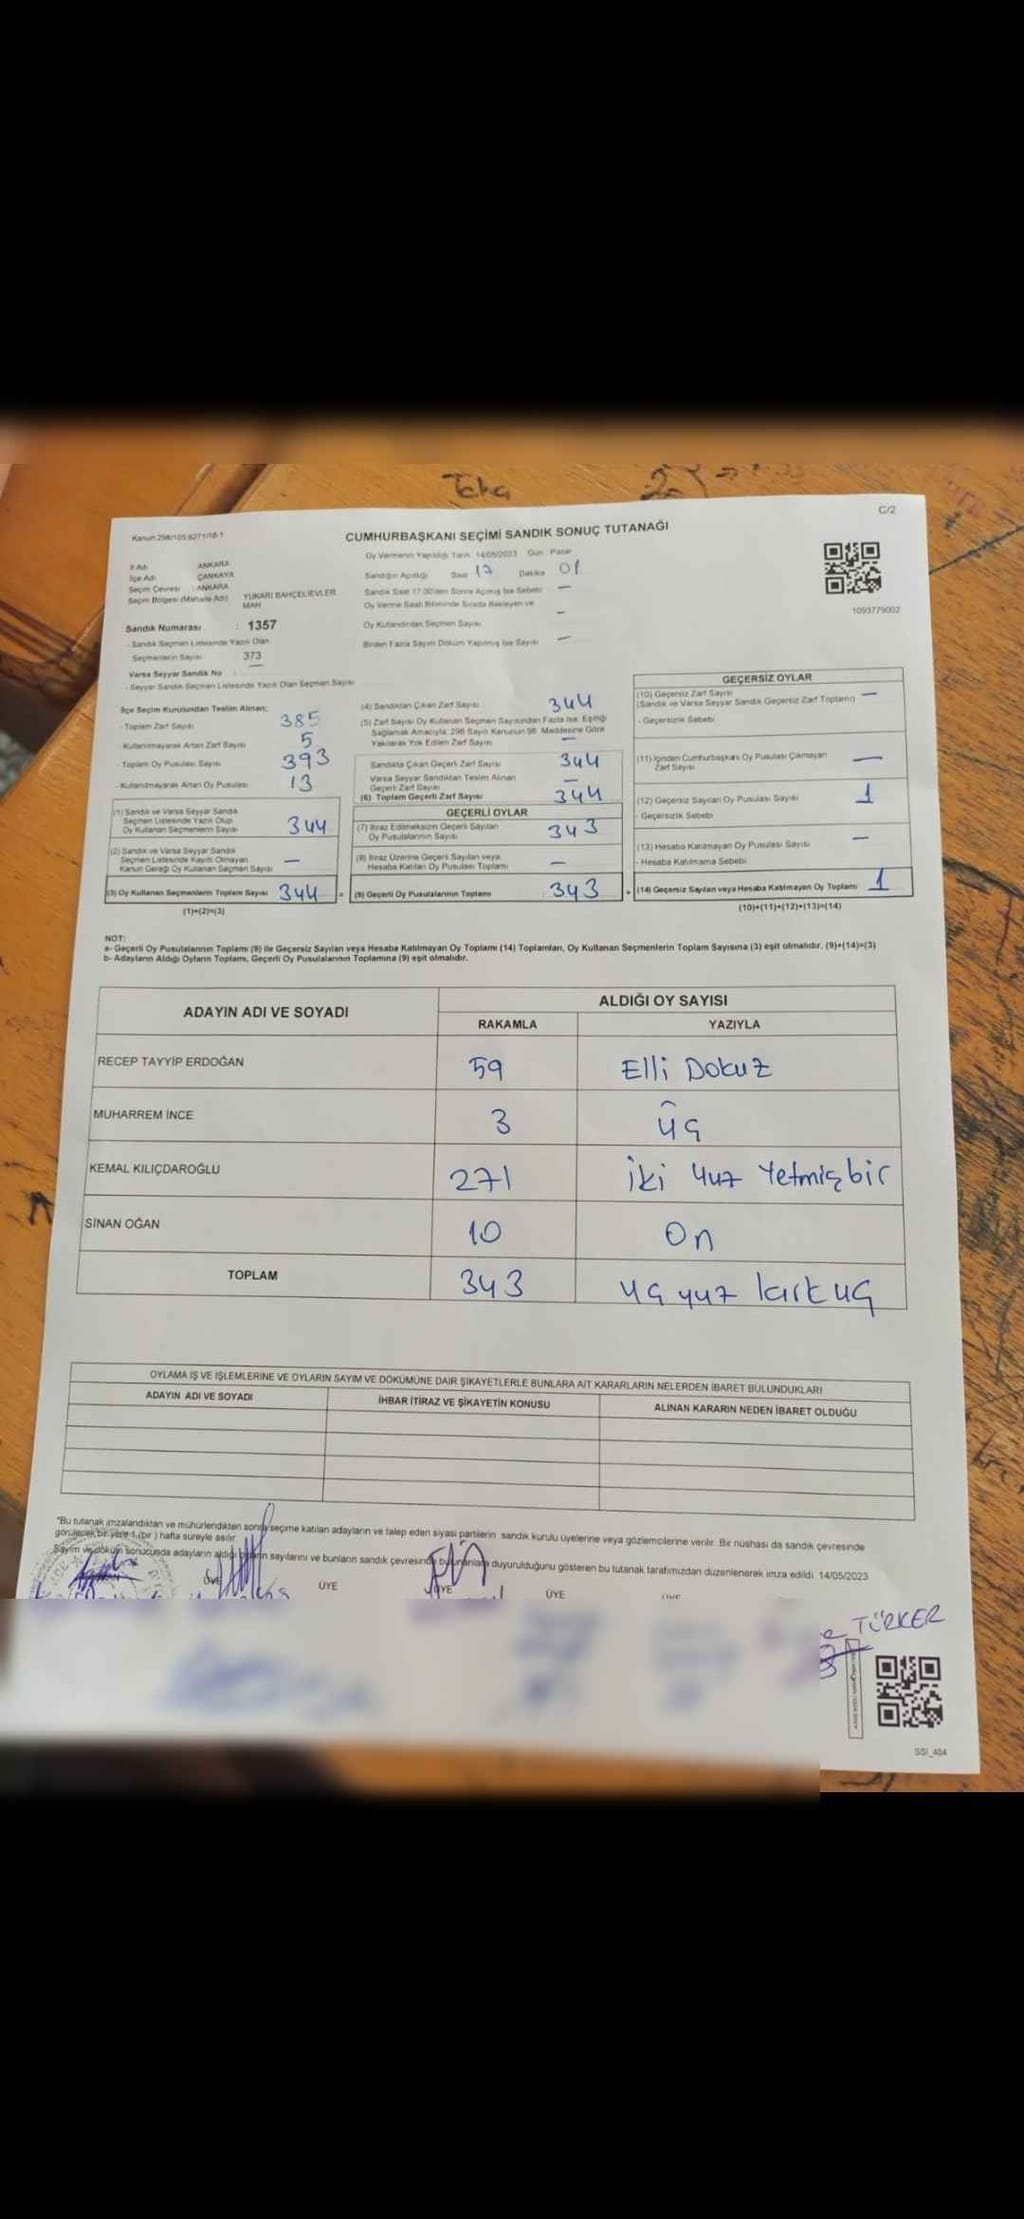 Kanun:298/105 6271/18-1
C/2
CUMHURBAŞKANI SEÇİMİ SANDIK SONUÇ TUTANAĞI
Oy Vermenin Yapıldığı Tarih: 14/05/2023 Gün: Pazar
İl Adı ANKARA
İlçe Adı ÇANKAYA
Seçim Çevresi : ANKARA
Seçim Bölgesi (Mahalle Adı) YUKARI BAHÇELİEVLER MAH
Sandığın Açıldığı Saat 17 Dakika 01
Sandık Saat 17.00'den Sonra Açılmış İse Sebebi —
Oy Verme Saati Bitiminde Sırada Bekleyen ve
Oy Kullandırılan Seçmen Sayısı —
Birden Fazla Sayım Döküm Yapılmış İse Sayısı —
1093779002
Sandık Numarası : 1357
- Sandık Seçmen Listesinde Yazılı Olan
Seçmenlerin Sayısı 373
Varsa Seyyar Sandık No —
- Seyyar Sandık Seçmen Listesinde Yazılı Olan Seçmen Sayısı
İlçe Seçim Kurulundan Teslim Alınan;
- Toplam Zarf Sayısı 385
- Kullanılmayarak Artan Zarf Sayısı 5
- Toplam Oy Pusulası Sayısı 393
- Kullanılmayarak Artan Oy Pusulası 13
(1) Sandık ve Varsa Seyyar Sandık
Seçmen Listesinde Yazılı Olup
Oy Kullanan Seçmenlerin Sayısı 344
(2) Sandık ve Varsa Seyyar Sandık
Seçmen Listesinde Kayıtlı Olmayan
Kanun Gereği Oy Kullanan Seçmen Sayısı —
(3) Oy Kullanan Seçmenlerin Toplam Sayısı 344 =
(1)+(2)=(3)
(4) Sandıktan Çıkan Zarf Sayısı 344
(5) Zarf Sayısı Oy Kullanan Seçmen Sayısından Fazla İse, Eşitliği
Sağlamak Amacıyla; 298 Sayılı Kanunun 98. Maddesine Göre
Yakılarak Yok Edilen Zarf Sayısı —
Sandıkta Çıkan Geçerli Zarf Sayısı 344
Varsa Seyyar Sandıktan Teslim Alınan
Geçerli Zarf Sayısı —
(6) Toplam Geçerli Zarf Sayısı 344
GEÇERLİ OYLAR
(7) İtiraz Edilmeksizin Geçerli Sayılan
Oy Pusulalarının Sayısı 343
(8) İtiraz Üzerine Geçerli Sayılan veya
Hesaba Katılan Oy Pusulası Toplamı —
(9) Geçerli Oy Pusulalarının Toplamı 343 +
GEÇERSİZ OYLAR
(10) Geçersiz Zarf Sayısı —
(Sandık ve Varsa Seyyar Sandık Geçersiz Zarf Toplamı)
- Geçersizlik Sebebi
(11) İçinden Cumhurbaşkanı Oy Pusulası Çıkmayan
Zarf Sayısı —
(12) Geçersiz Sayılan Oy Pusulası Sayısı 1
- Geçersizlik Sebebi
(13) Hesaba Katılmayan Oy Pusulası Sayısı —
- Hesaba Katılmama Sebebi
(14) Geçersiz Sayılan veya Hesaba Katılmayan Oy Toplamı 1
(10)+(11)+(12)+(13)=(14)
NOT:
a- Geçerli Oy Pusulalarının Toplamı (9) ile Geçersiz Sayılan veya Hesaba Katılmayan Oy Toplamı (14) Toplamları, Oy Kullanan Seçmenlerin Toplam Sayısına (3) eşit olmalıdır. (9)+(14)=(3)
b- Adayların Aldığı Oyların Toplamı, Geçerli Oy Pusulalarının Toplamına (9) eşit olmalıdır.
ADAYIN ADI VE SOYADI ALDIĞI OY SAYISI
RAKAMLA YAZIYLA
RECEP TAYYİP ERDOĞAN 59 Elli Dokuz
MUHARREM İNCE 3 üç
KEMAL KILIÇDAROĞLU 271 iki yuz Yetmiş bir
SİNAN OĞAN 10 On
TOPLAM 343 uç yuz kırk uç
OYLAMA İŞ VE İŞLEMLERİNE VE OYLARIN SAYIM VE DÖKÜMÜNE DAİR ŞİKAYETLERLE BUNLARA AİT KARARLARIN NELERDEN İBARET BULUNDUKLARI
ADAYIN ADI VE SOYADI İHBAR İTİRAZ VE ŞİKAYETİN KONUSU ALINAN KARARIN NEDEN İBARET OLDUĞU
"Bu tutanak imzalandıktan ve mühürlendikten sonra seçime katılan adayların ve talep eden siyasi partilerin sandık kurulu üyelerine veya gözlemcilerine verilir. Bir nüshası da sandık çevresinde
görülecek bir yere 1 (bir) hafta süreyle asılır.
Sayım ve döküm sonucusda adayların aldığı oyların sayılarını ve bunların sandık çevresinde bulunanlara duyurulduğunu gösteren bu tutanak tarafımızdan düzenlenerek imza edildi. 14/05/2023
ÜYE ÜYE ÜYE ÜYE
TÜRKER
SSI_404